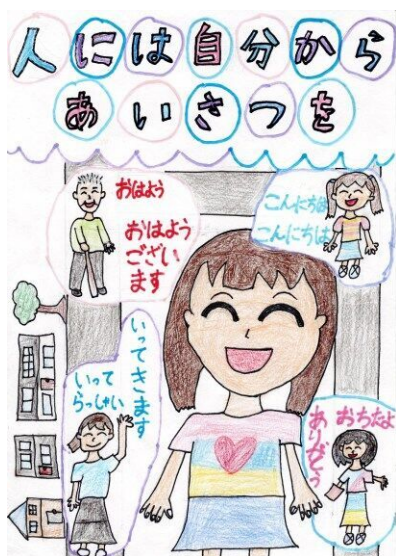 人には自分から
あいさつを
おはよう
おはよう
ござい
ます
こんにちは
こんにちは
いってきます
いって
らっしゃい
おちたよ
ありがとう